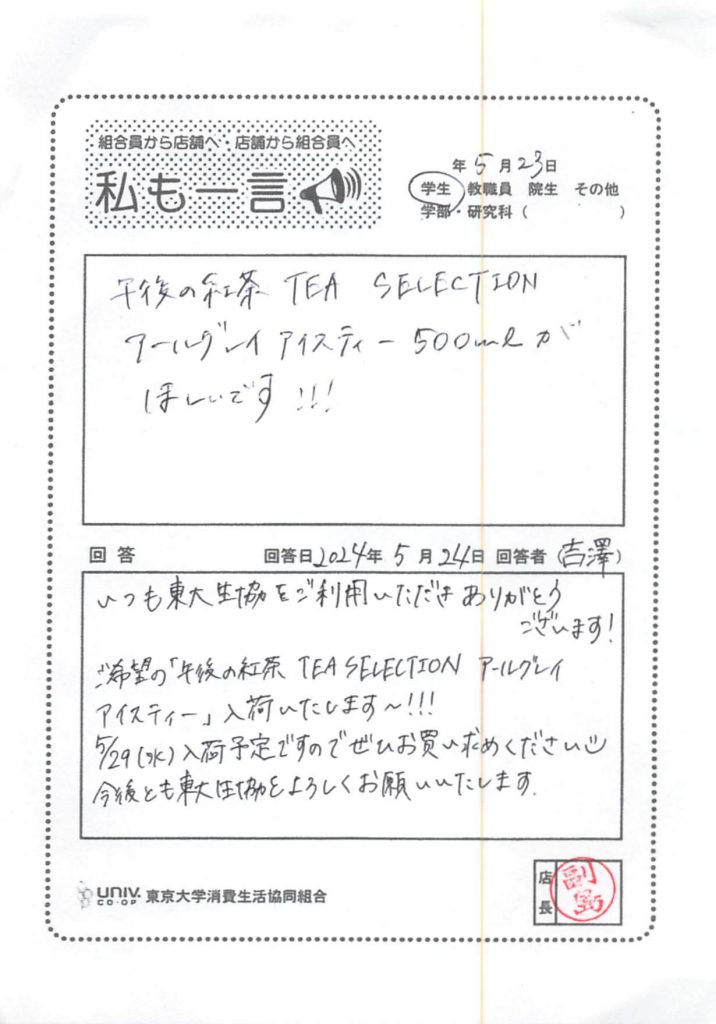 組合員から店舗へ・店舗から組合員へ
私も一言
年5月23日
学生 教職員 院生 その他
学部・研究科（ ）
午後の紅茶 TEA SELECTION
アールグレイ アイスティー 500mlが
ほしいです!!!
回答 回答日2024年5月24日 回答者（吉澤）
いつも東大生協をご利用いただきありがとう
ございます!
ご希望の「午後の紅茶 TEA SELECTION アールグレイ
アイスティー」入荷いたします～!!!
5/29(水)入荷予定ですのでぜひお買い求めください
今後とも東大生協をよろしくお願いいたします.
UNIV. CO-OP 東京大学消費生活協同組合
店長
副島